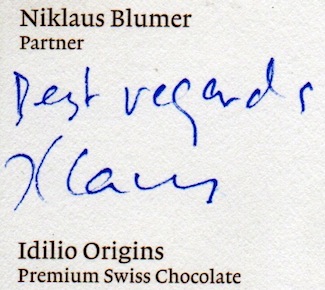 Niklaus Blumer
Partner
Best regards
Klaus
Idilio Origins
Premium Swiss Chocolate